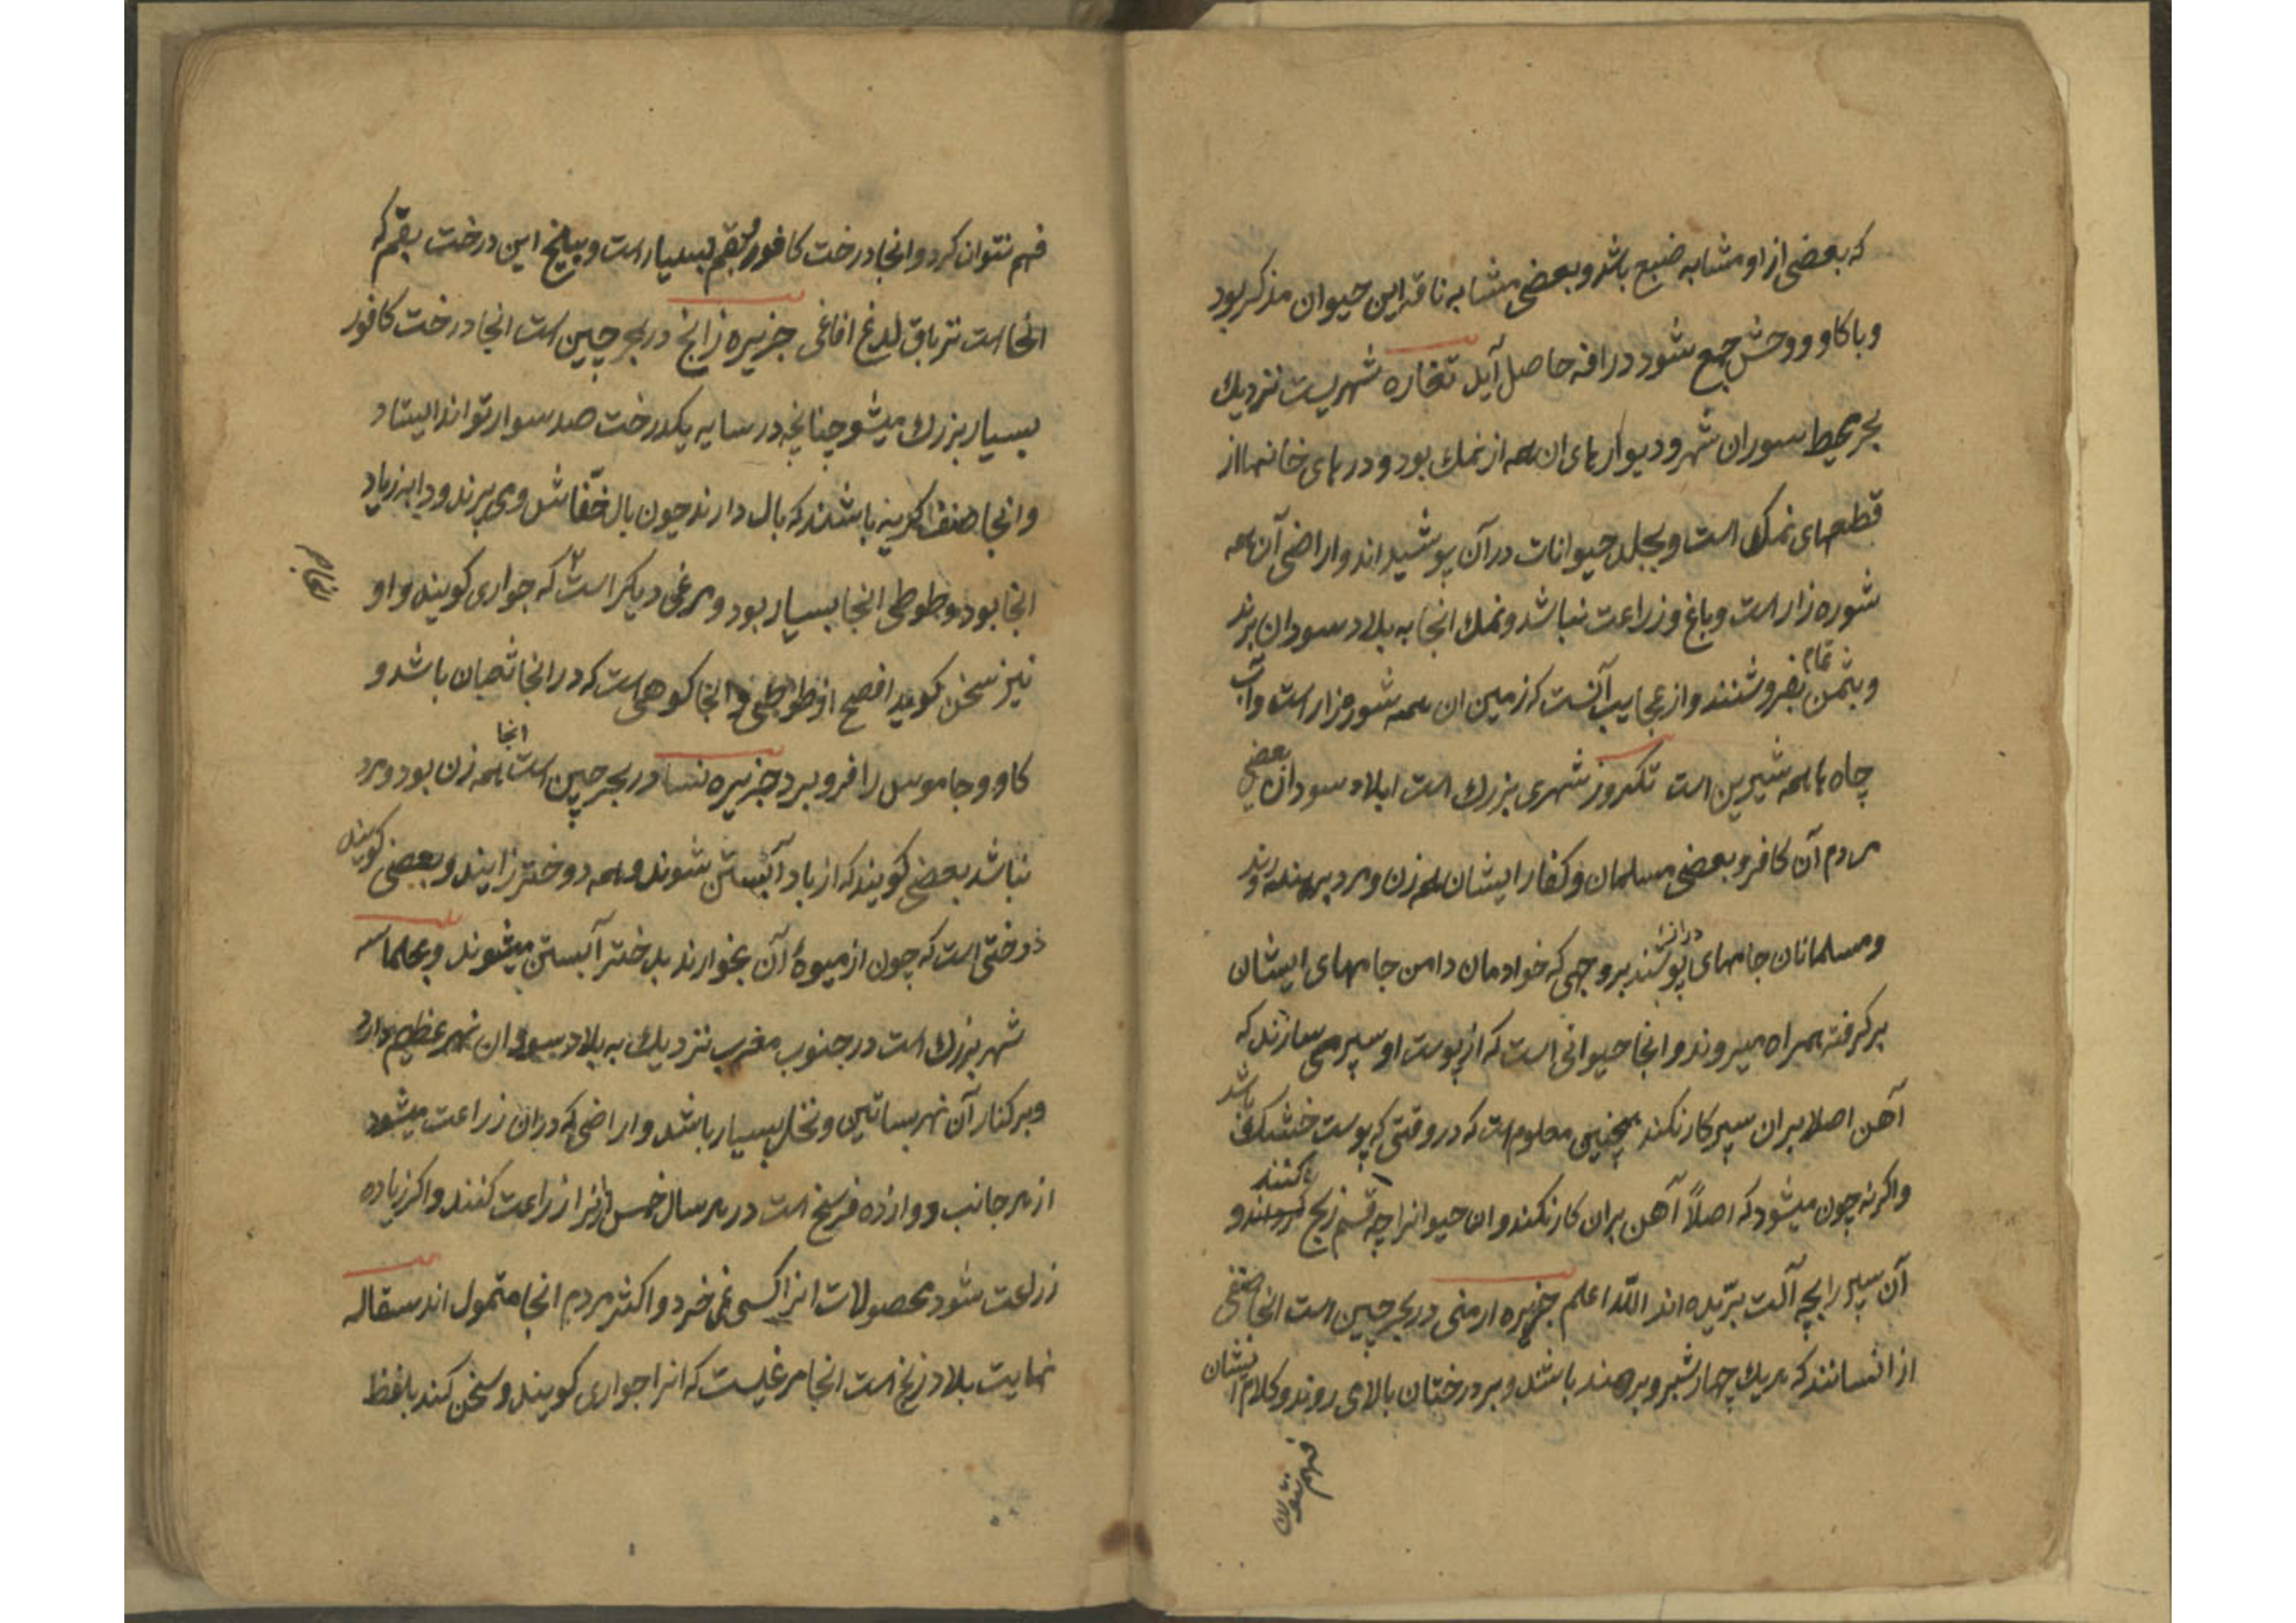 که بعضی از او مشابه ضبع باشد و بعضی مشابه ناقه این حیوان مذکر بود
و با کاو وحش جمع شود درافه حاصل آید تغاره شهریست نزدیك
بحر محیط سوران شهر و دیوارهای ان همه از نمك بود و درهای خانها از
قطعهای نمك است و بجلد حیوانات در آن پوشیده اند و اراضی آن همه
شوره زار است و باغ و زراعت نباشد و نمك انجا به بلاد سودان برند
و بثمن تمام بفروشنند و از عجایب آنست که زمین ان همه شوره زار است و آب
چاه ها همه شیرین است تکرور شهری بزرك است ابلاد سودان بعضی
مردم آن کافر و بعضی مسلمان و کفار ایشان همه زن و مرد برهنه روند
و مسلمانان جامهای دراز پوشند بروجهی که خوادمان دامن جامهای ایشان
بر کرفته همراه میروند و انجا حیوانی است که از پوست او سپر می سازند که
آهن اصلا بران سپر کار نکند همچنین معلومست که در وقتی که پوست خشك باشد
و اکر نه چون میشود که اصلاً آهن بران کار نکند و ان حیوانرا چه قسم زبح کنند و
آن سپر را بچه آلت بریده اند اللّه اعلم جزیره ارمنی در بحر چین است انجا صنفی
از انسانند که هر یك چهار شبر و برهنه باشند و بر درختان بالای روند و کلام ایشان
فهم نتوان
فهم نتوان کرد و انجا درخت کافور و بقم بسیار است و بیخ این درخت بقم که
انجا است تریاق لدغ افاعی جزیره زانج در بحر چین است انجا درخت کافور
بسیار بزرك میشو چنانچه در سایه یکدرخت صد سوار تواند ایستاد
و انجا صنف کربه باشند که بال دارند چون بال خفّاش و می پرند و دابه زیاد
انجا بود و طوطی انجا بسیار بود و مرغی دیکر است که جواری کویند و او
نیز سخن کوید افصح از طوطی و انجا کوهی است که در انجا ثعبان باشد و
کاو و جاموس را فرو برد جزیره نسا در بحر چین است انجا همه زن بود و مرد
نباشد بعضی کویند که از باد آبستن شوند و همه دوختر زایند و بعضی کویند
دوختی است که چون از میوهٔ آن بخوارند بدختر آبستن میشوند و بعلماسه
شهر بزرك است در جنوب مغرب نزدیك به بلاد سودان نهر عظیم دارد
و بر کنار آن نهر بساتین و نخل بسیار باشد و اراضی که دران زراعت میشود
از هر جانب دوازده فرسخ است در هر سال خمس انرا زراعت کنند و اکر زیاده
زراعت شود محصولات انرا کسی نمی خرد و اکثر مردم انجا متمول اند سقاله
نهایت بلاد زنج است انجا مرغیست که انرا جواری کویند و سخن کند بلفظ